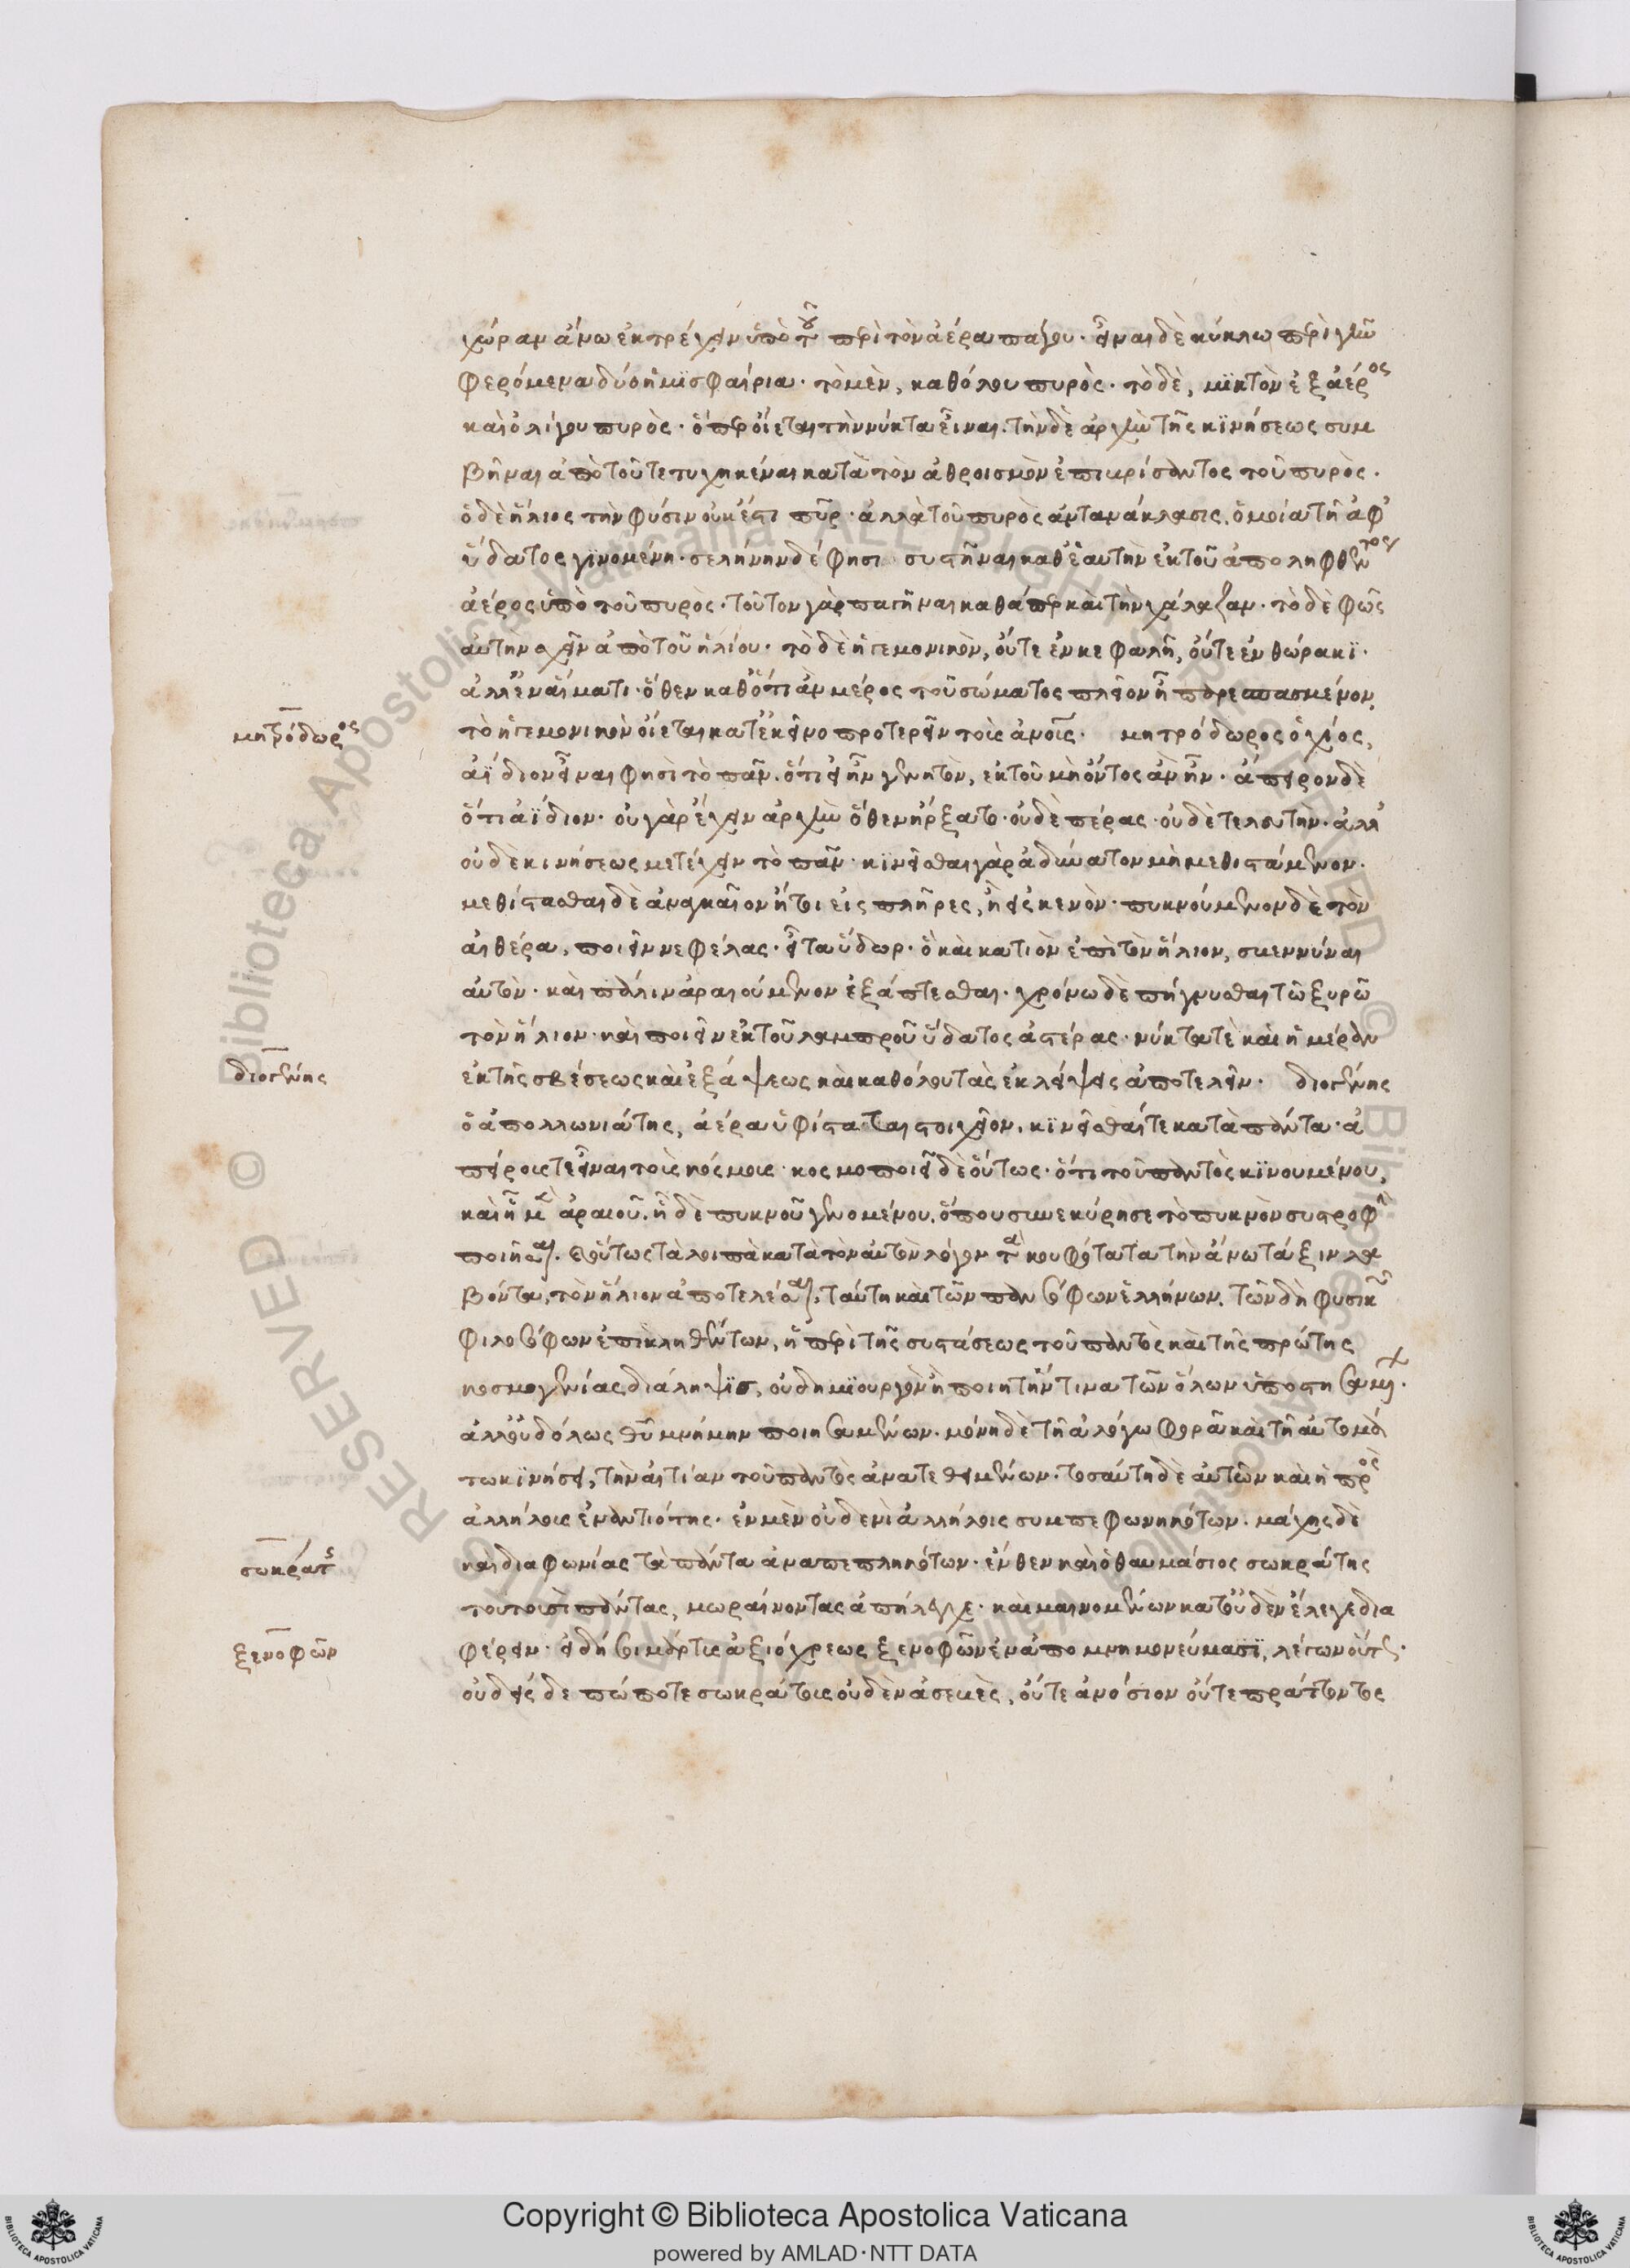 χώραν ἄνω ἐκτρέχειν ὑπὸ τοῦ περὶ τὸν ἀέρα πάγου· εἶναι δὲ κύκλω περὶ γῆν
φερόμενα δύο ἡμϊσφαίρια· τὸ μὲν, καθόλου πυρὸς· τὸ δὲ, μϊκτὸν ἐξ ἀέρος
καὶ ὀλίγου πυρὸς· ὅπερ οἴεται τὴν νύκτα εἶναι. τὴν δὲ ἀρχὴν τῆς κϊνήσεως συμ
βῆναι ἀπὸ τοῦ τετυχηκέναι κατὰ τὸν ἀθροισμὸν ἐπιβρίσαντος τοῦ πυρὸς·
ὁ δὲ ἥλιος τὴν φύσιν οὐκ ἔστι πῦρ· ἀλλὰ τοῦ πυρὸς ἀντανάκλασις, ὁμοία τῆ ἀφ'
ὕδατος γϊνομένη· σελήνην δέ φησι συστῆναι καθ' ἑαυτὴν ἐκ τοῦ ἀποληφθέντος
ἀέρος ὑπὸ τοῦ πυρὸς· τοῦτον γὰρ παγῆναι καθάπερ καὶ τὴν χάλαζαν· τὸ δὲ φῶς
αὐτὴν σχεῖν ἀπὸ τοῦ ἡλίου· τὸ δὲ ἡγεμονικὸν, οὔτε ἐν κεφαλῆ, οὔτε ἐν θώρακϊ·
ἀλλ' ἐν αἵματι· ὅθεν καθ' ὅτι ἂν μέρος τοῦ σώματος πλεῖον ἦ παρεσπασμένον,
μητρόδωρος
τὸ ἡγεμονικὸν οἴεται κατ' ἐκεῖνο προτερεῖν τοῖς ἀνοις· μητρόδωρος ὁ χίος,
ἀΐδιον εἶναι φησὶ τὸ πᾶν· ὅτι εἰ ἦν γεννητὸν, ἐκ τοῦ μὴ ὄντος ἂν ἦν· ἄπειρον δὲ
ὅτι ἀΐδιον· οὐ γὰρ ἔχειν ἀρχὴν ὅθεν ἤρξατο· οὐδὲ πέρας· οὐδὲ τελευτὴν· ἀλλ'
οὐδὲ κινήσεως μετέχειν τὸ πᾶν· κϊνεῖσθαι γὰρ ἀδύνατον μὴ μεθιστάμενον·
μεθίστασθαι δὲ ἀναγκαῖον ἤτοι εἰς πλῆρες, ἢ εἰς κενὸν· πυκνούμενον δὲ τὸν
αἰθέρα, ποιεῖν νεφέλας· εἶτα ὕδωρ· ὃ καὶ κατιὸν ἐπὶ τὸν ἥλιον, σβεννύναι
αὐτὸν· καὶ πάλιν ἀραιούμενον ἐξάπτεσθαι· χρόνω δὲ πήγνυσθαι τῶ ξηρῶ
τὸν ἥλιον· καὶ ποιεῖν ἐκ τοῦ λαμπροῦ ὕδατος ἀστέρας· νύκτα τὲ καὶ ἡμέραν
διογένης
ἐκ τῆς σβέσεως καὶ ἐξάψεως καὶ καθόλου τὰς ἐκλείψεις ἀποτελεῖν· διογένης
ὁ ἀπολλωνιάτης, ἀέρα ὑφίσταται στοιχεῖον· κϊνεῖσθαί τε κατὰ πάντα· ἀ
πείρους τε εἶναι τοὺς κόσμους· κοσμοποιεῖ δὲ οὕτως· ὅτι τοῦ παντὸς κϊνουμένου,
καὶ ἦ μὲν ἀραιοῦ, ἦ δὲ πυκνοῦ γινομένου, ὅπου συνεκύρησε τὸ πυκνὸν συστροφὴν
ποιῆσαι· οὕτως τὰ λοιπὰ κατὰ τὸν αὐτὸν λόγον τὰ κουφότατα τὴν ἄνω τάξιν λα
βόντα, τὸν ἥλιον ἀποτελέσαι· ταύτη καὶ τῶν πανσόφων ἑλλήνων, τῶν δὴ φυσικῶν
φιλοσόφων ἐπικληθέντων, ἡ περὶ τῆς συστάσεως τοῦ παντὸς καὶ τῆς πρώτης
κοσμογονίας διάληψϊς, οὐ δημϊουργὸν ἢ ποιητήν τινα τῶν ὅλων ὑποστησαμένων·
ἀλλ' οὐδ' ὅλως θῦ μνήμην ποιησαμένων· μόνη δὲ τῆ ἀλόγω φορᾶ καὶ τῆ αὐτομά
τω κϊνήσει, τὴν αἰτίαν τοῦ παντὸς ἀνατεθειμένων· τοσαύτη δὲ αὐτῶν καὶ ἡ πρὸς
ἀλλήλους ἐναντιότης· ἐν μὲν οὐδενὶ ἀλλήλοις συμπεφωνηκότων· μάχης δὲ
σωκράτης
καὶ διαφωνίας τὰ πάντα ἀναπεπληκότων· ἔνθεν καὶ ὁ θαυμάσιος σωκράτης
τούτους πάντας, μωραίνοντας ἀπήλεγχε· καὶ μαινομένων κατ' οὐδὲν ἔλεγε δια
ξενοφῶν
φέρειν· εἰ δή σοι μάρτυς ἀξιόχρεως ξενοφῶν ἐν ἀπομνημονεύμασϊ, λέγων οὕτως·
οὐδεὶς δὲ πώποτε σωκράτους οὐδὲν ἀσεβὲς, οὔτε ἀνόσιον οὔτε πράττοντος
Copyright © Biblioteca Apostolica Vaticana
powered by AMLAD·NTT DATA